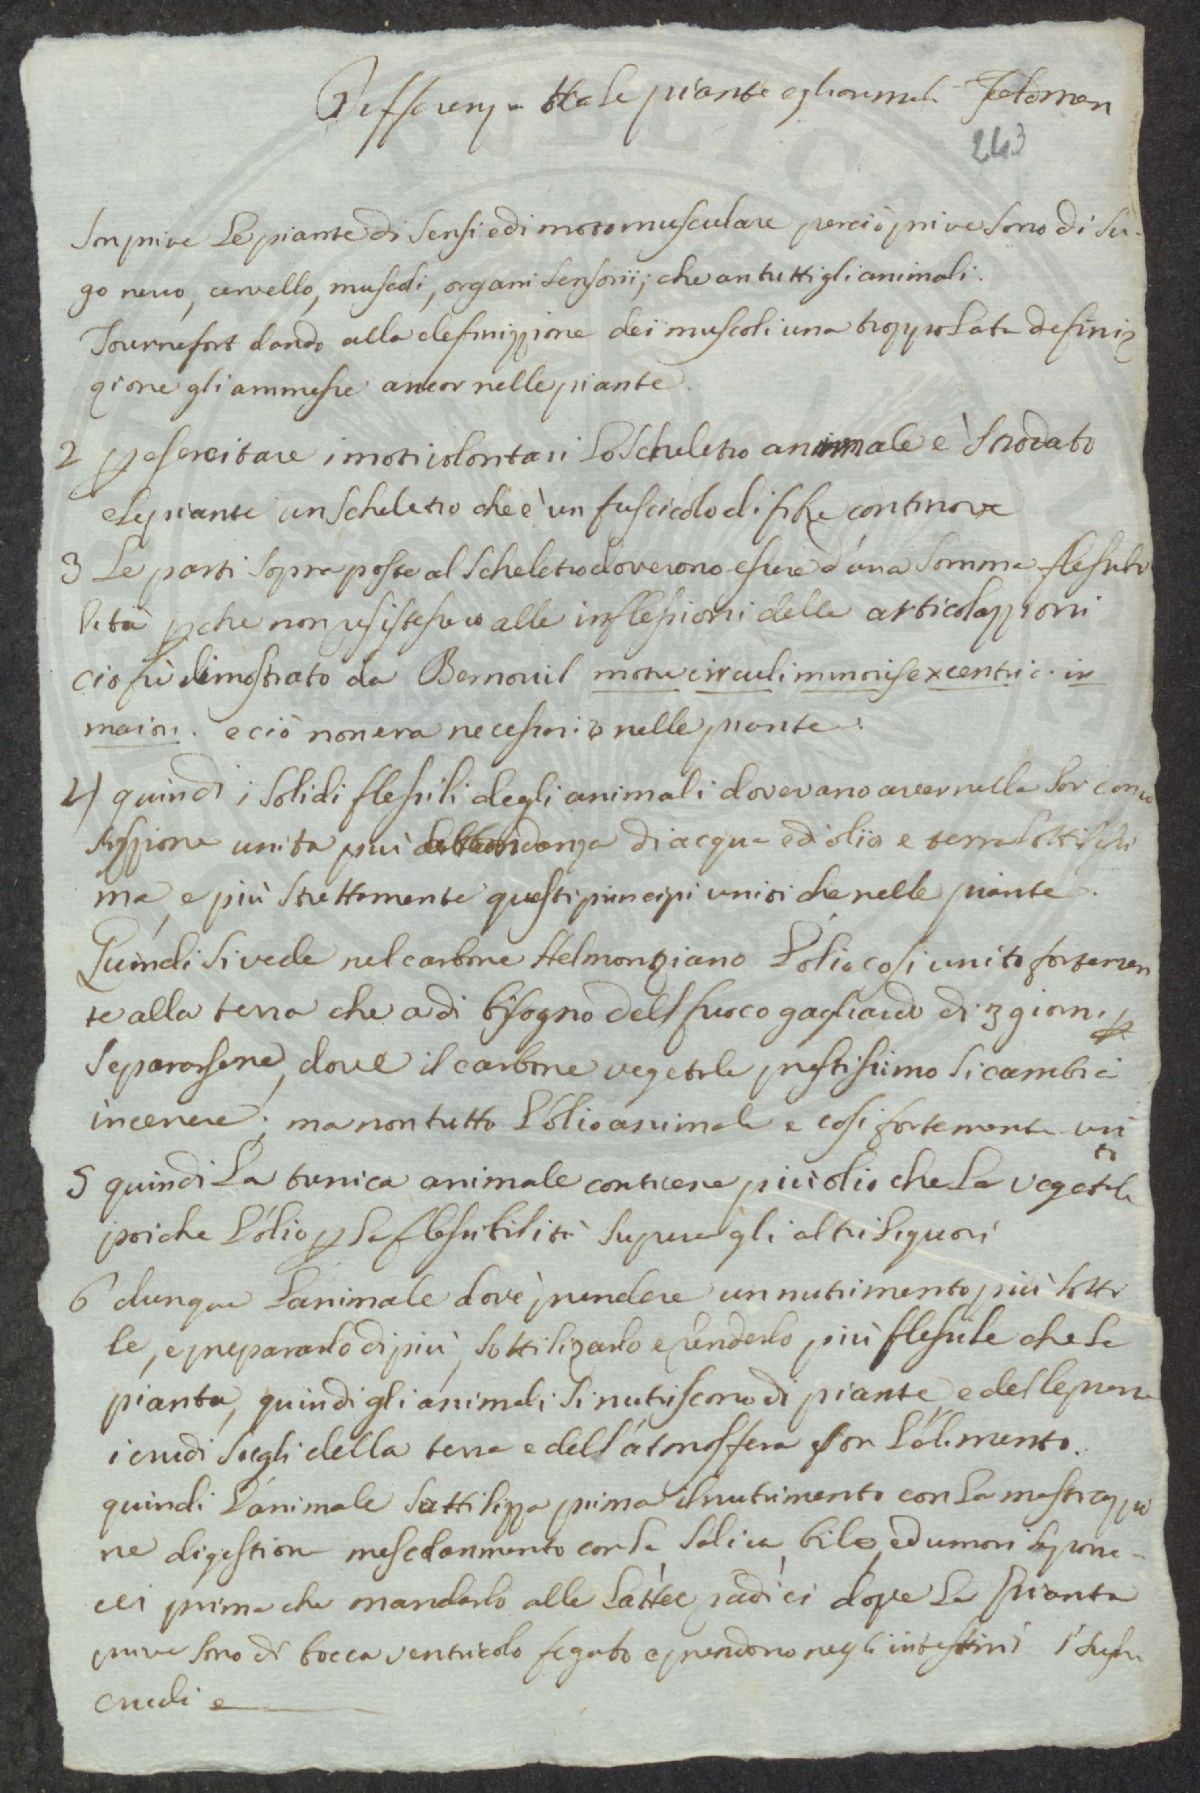 Differenza tra le piante e gli animali
243
Son prive Le piante di Sensi e di moto musculare perciò prive sono di su-
go nerveo, cervello, muscoli, organi sensorii; che an tutti gli animali.
Tournefort dando alla definizzione dei muscoli una troppo lata definiz
zione gli ammesse ancor nelle piante.
2 p esercitare i moti volontari Lo scheletro animale è snodato
e le piante un scheletro che è un fascicolo di fibre continove
3 Le parti sopra poste al scheletro doverono essere d'una somma flessibi
lità pche non resistessero alle inflessioni delle articolazzioni
ciò fù dimostrato da Bernovil motu circuli minoris excentric. in
maiori. e ciò non era necessario nelle piante.
4 quindi i solidi flessili degli animali dovevano aver nella lor compo
sizzione unita più abbondanza di acqua ed olio e terra sottilissi
ma, e più strettamente questi principi uniti che nelle piante.
Quindi si vede nel carbone Helmonziano L'olio così unito fortemen
te alla terra che a di bisogno dell fuoco gagliardo di 3 giorni p
separarsene, dove il carbone vegetale prestissimo si cambia
in cenere; ma non tutto L'olio animale e così fortemente uni
to
5 quindi La tunica animale contiene più olio che La vegetale
poiche L'olio p la flessibilità supera gli altri liquori
6 dunque L'animale dovè prendere un nutrimento più sotti
le, e prepararlo di più, sottilizarlo e renderlo più flessile che le
pianta, quindi gli animali si nutriscono di piante, e delle piante
i crudi sughi della terra e dell'atmosfera son L'alimento.
quindi L'animale sottilizza prima il nutrimento con La masticazzio
ne digestione mescolanmento con la saliva, bile, ed umori sapona-
cei prima che mandarlo alle lattee radici dove La pianta
prive sono di bocca ventricolo fegato e prendono negli intestini i sughi
crudi e